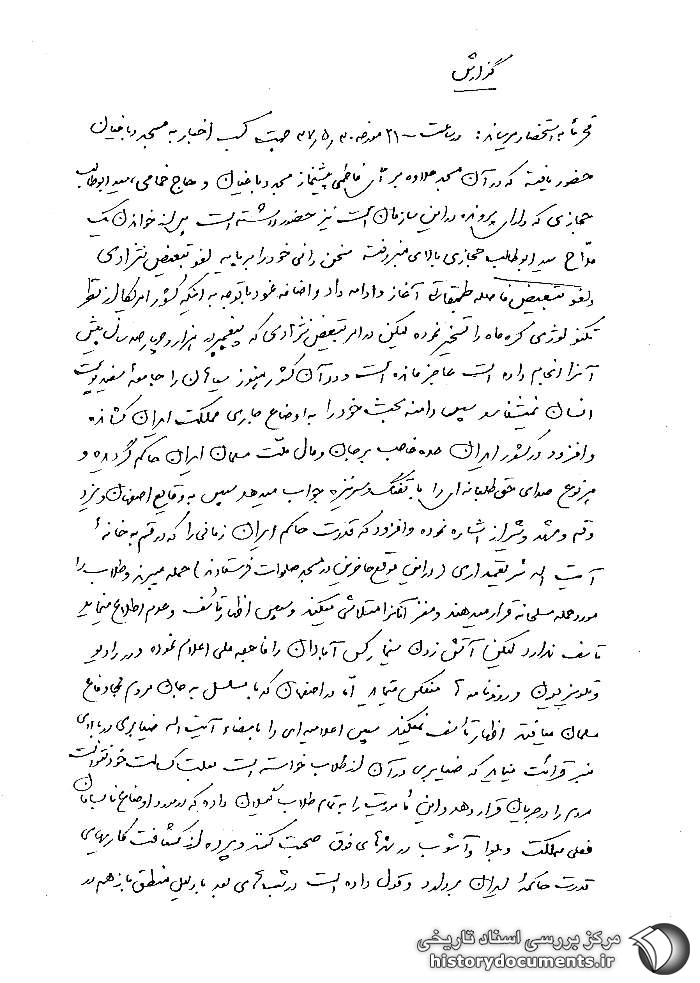 گزارش
محترماً به استحضار میرساند: در ساعت ۲۱۰۰ مورخه ۳۷/۵/۳۰ جهت کسب اخبار به مسجد دباغیان
حضور یافته که در آن مسجد علاوه بر آقای فاطمی پیشنماز مسجد دباغیان و حاج خمامی، سید ابوطالب
حجازی که دارای پرونده در این سازمان است نیز حضور داشته است پس از خواندن یک
مداح سید ابوطالب حجازی بالای منبر رفته سخن رانی خود را بر پایه لغو تبعیض نژادی
و لغو تبعیض فاصله طبقاتی آغاز و ادامه داد و اضافه نمود با توجه به اینکه کشور امریکا از نظر
تکنولوژی کره ماه را تسخیر نموده لیکن در امر تبعیض نژادی که پیغمبر در هزار و چهار صد سال پیش
آنرا انجام داده است عاجز مانده است و در آن کشور هنوز سیاهان را جامعه سفید پوست
انسان نمیشناسد سپس دامنه بحث خود را به اوضاع جاری مملکت ایران کشانده
و افزود در کشور ایران عده غاصب بر جان و مال ملت مسلمان ایران حاکم گردیده و
هر نوع صدای حق طلبانه ای را با تفنگ و سرنیزه جواب میدهد سپس به وقایع اصفهان و یزد
و قم و مشهد و شیراز اشاره نموده و افزود که قدرت حاکم ایران زمانی را که در قم به خانه
آیت اله شریعتمداری (در این موقع حاضرین در مسجد صلوات فرستادند) حمله میبرند و طلاب را
مورد حمله مسلحانه قرار میدهند و مغز آنانرا متلاشی میکند و سپس اظهار تأسف و عدم اطلاع مینماید
تاسف ندارد لیکن آتش زدن سینما رکس آبادان را فاجعه ملی اعلام نموده در رادیو
و تلویزیون و روزنامه ها منعکس مینماید اما در اصفهان که با مسلسل به جان مردم بیدفاع
مسلمان میافتند اظهار تأسف نمیکند سپس اعلامیه ای را با مضاء آیت اله ضیابری در بالای
منبر قرائت مینماید که ضیابری در آن از طلاب خواسته است بعلت کسالت خود نتوانست
مردم را در جریان قرار دهد و این مأموریت را به تمام طلاب گیلان داده که در مورد اوضاع نابسامان
فعلی مملکت و بلوا و آشوب در شهرهای فوق صحبت کنند و پرده از کثافت کاریهای
قدرت حاکمه ایران بردارد و قول داده است در شب های بعد با دلیل منطق باز هم در
مرکز بررسی اسناد تاریخی
historydocuments.ir